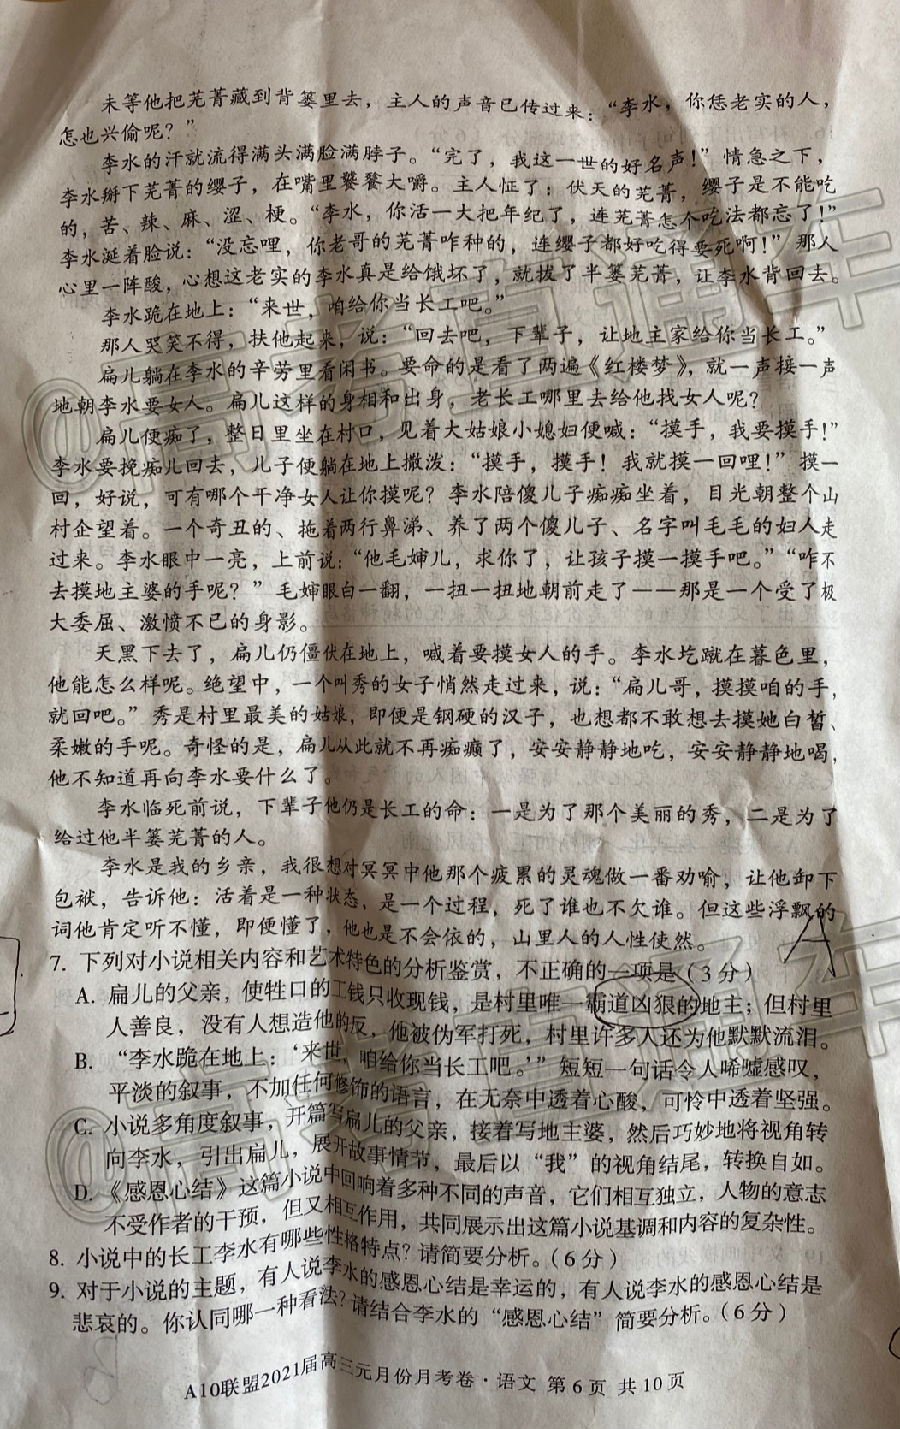 未等他把芜菁藏到背篓里去，主人的声音已传过来：“李水，你恁老实的人，
怎也兴偷呢？”
李水的汗就流得满头满脸满脖子。“完了，我这一世的好名声！”情急之下，
李水掰下芜菁的缨子，在嘴里饕餮大嚼。主人怔了；伏天的芜菁，缨子是不能吃
的，苦、辣、麻、涩、梗。“李水，你活一大把年纪了，连芜菁怎个吃法都忘了！”
李水涎着脸说：“没忘哩，你老哥的芜菁咋种的，连缨子都好吃得要死啊！”那人
心里一阵酸，心想这老实的李水真是给饿坏了，就拔了半篓芜菁，让李水背回去。
李水跪在地上：“来世，咱给你当长工吧。”
那人哭笑不得，扶他起来，说：“回去吧，下辈子，让地主家给你当长工。”
扁儿躺在李水的辛劳里看闲书。要命的是看了两遍《红楼梦》，就一声接一声
地朝李水要女人。扁儿这样的身相和出身，老长工哪里去给他找女人呢？
扁儿便痴了，整日里坐在村口，见着大姑娘小媳妇便喊：“摸手，我要摸手！”
李水要挽痴儿回去，儿子便躺在地上撒泼：“摸手，摸手！我就摸一回哩！”摸一
回，好说，可有哪个干净女人让你摸呢？李水陪傻儿子痴痴坐着，目光朝整个山
村企望着。一个奇丑的、拖着两行鼻涕、养了两个傻儿子、名字叫毛毛的妇人走
过来。李水眼中一亮，上前说：“他毛婶儿，求你了，让孩子摸一摸手吧。”“咋不
去摸地主婆的手呢？”毛婶眼白一翻，一扭一扭地朝前走了——那是一个受了极
大委屈、激愤不已的身影。
天黑下去了，扁儿仍僵伏在地上，喊着要摸女人的手。李水圪蹴在暮色里，
他能怎么样呢。绝望中，一个叫秀的女子悄然走过来，说：“扁儿哥，摸摸咱的手，
就回吧。”秀是村里最美的姑娘，即便是钢硬的汉子，也想都不敢想去摸她白皙、
柔嫩的手呢。奇怪的是，扁儿从此就不再痴癫了，安安静静地吃，安安静静地喝，
他不知道再向李水要什么了。
李水临死前说，下辈子他仍是长工的命：一是为了那个美丽的秀，二是为了
给过他半篓芜菁的人。
李水是我的乡亲，我很想对冥冥中他那个疲累的灵魂做一番劝喻，让他卸下
包袱，告诉他：活着是一种状态，是一个过程，死了谁也不欠谁。但这些浮飘的
词他肯定听不懂，即便懂了，他也是不会依的，山里人的人性使然。
7. 下列对小说相关内容和艺术特色的分析鉴赏，不正确的一项是（3分）
A
A. 扁儿的父亲，使牲口的工钱只收现钱，是村里唯一霸道凶狠的地主；但村里
人善良，没有人想造他的反，他被伪军打死，村里许多人还为他默默流泪。
B. “李水跪在地上：‘来世，咱给你当长工吧。’”短短一句话令人唏嘘感叹，
平淡的叙事，不加任何修饰的语言，在无奈中透着心酸，可怜中透着坚强。
C. 小说多角度叙事，开篇写扁儿的父亲，接着写地主婆，然后巧妙地将视角转
向李水，引出扁儿，展开故事情节，最后以“我”的视角结尾，转换自如。
D. 《感恩心结》这篇小说中回响着多种不同的声音，它们相互独立，人物的意志
不受作者的干预，但又相互作用，共同展示出这篇小说基调和内容的复杂性。
8. 小说中的长工李水有哪些性格特点？请简要分析。（6分）
9. 对于小说的主题，有人说李水的感恩心结是幸运的，有人说李水的感恩心结是
悲哀的。你认同哪一种看法？请结合李水的“感恩心结”简要分析。（6分）
A10联盟2021届高三元月份月考卷·语文 第6页 共10页
@高考直通车
@高考直通车